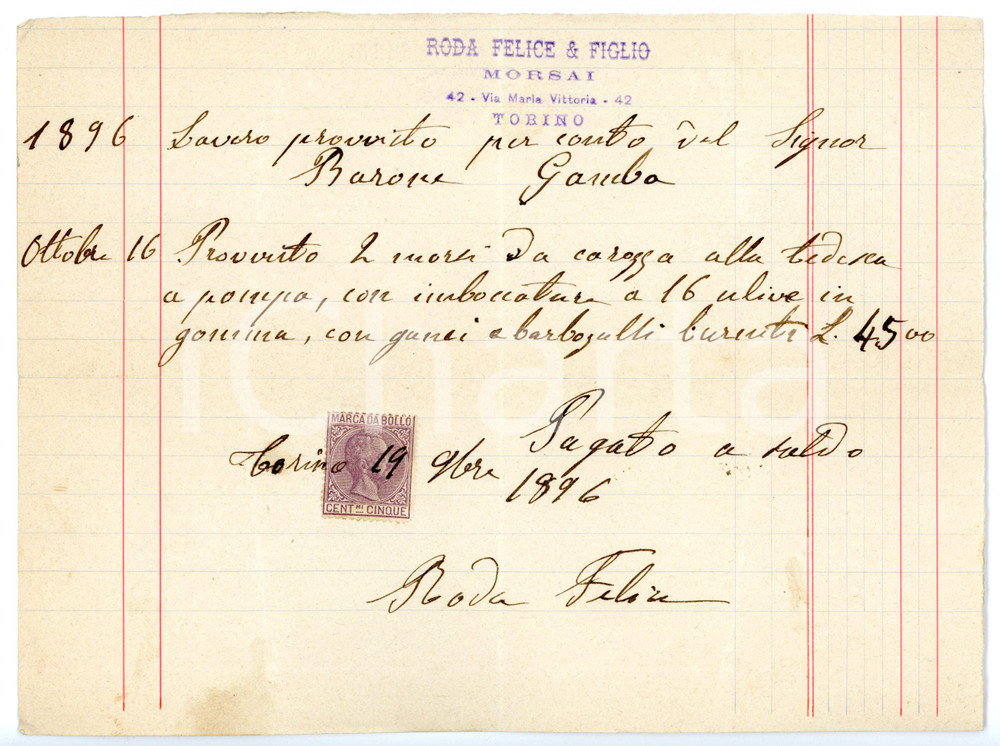 RODA FELICE & FIGLIO
MORSAI
42 - Via Maria Vittoria - 42
TORINO
1896 Lavoro provvisto per conto del Signor
Barone Gamba
Ottobre 16 Provvisto 2 morsi da carozza alla tedesca
a pompa, con imboccature a 16 ulive in
gomma, con ganci e barbozalli L. 45 00
MARCA DA BOLLO
CENT.MI CINQUE
Pagato a saldo
Torino 19 9bre 1896
Roda Felice
iCharta